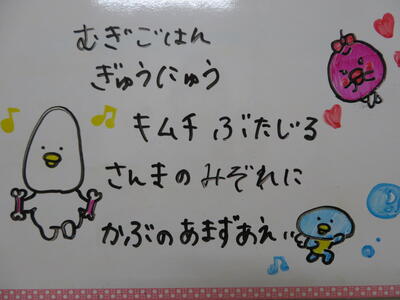 むぎごはん
ぎゅうにゅう
キムチ ぶたじる
さんまの みぞれに
かぶの あまずあえ